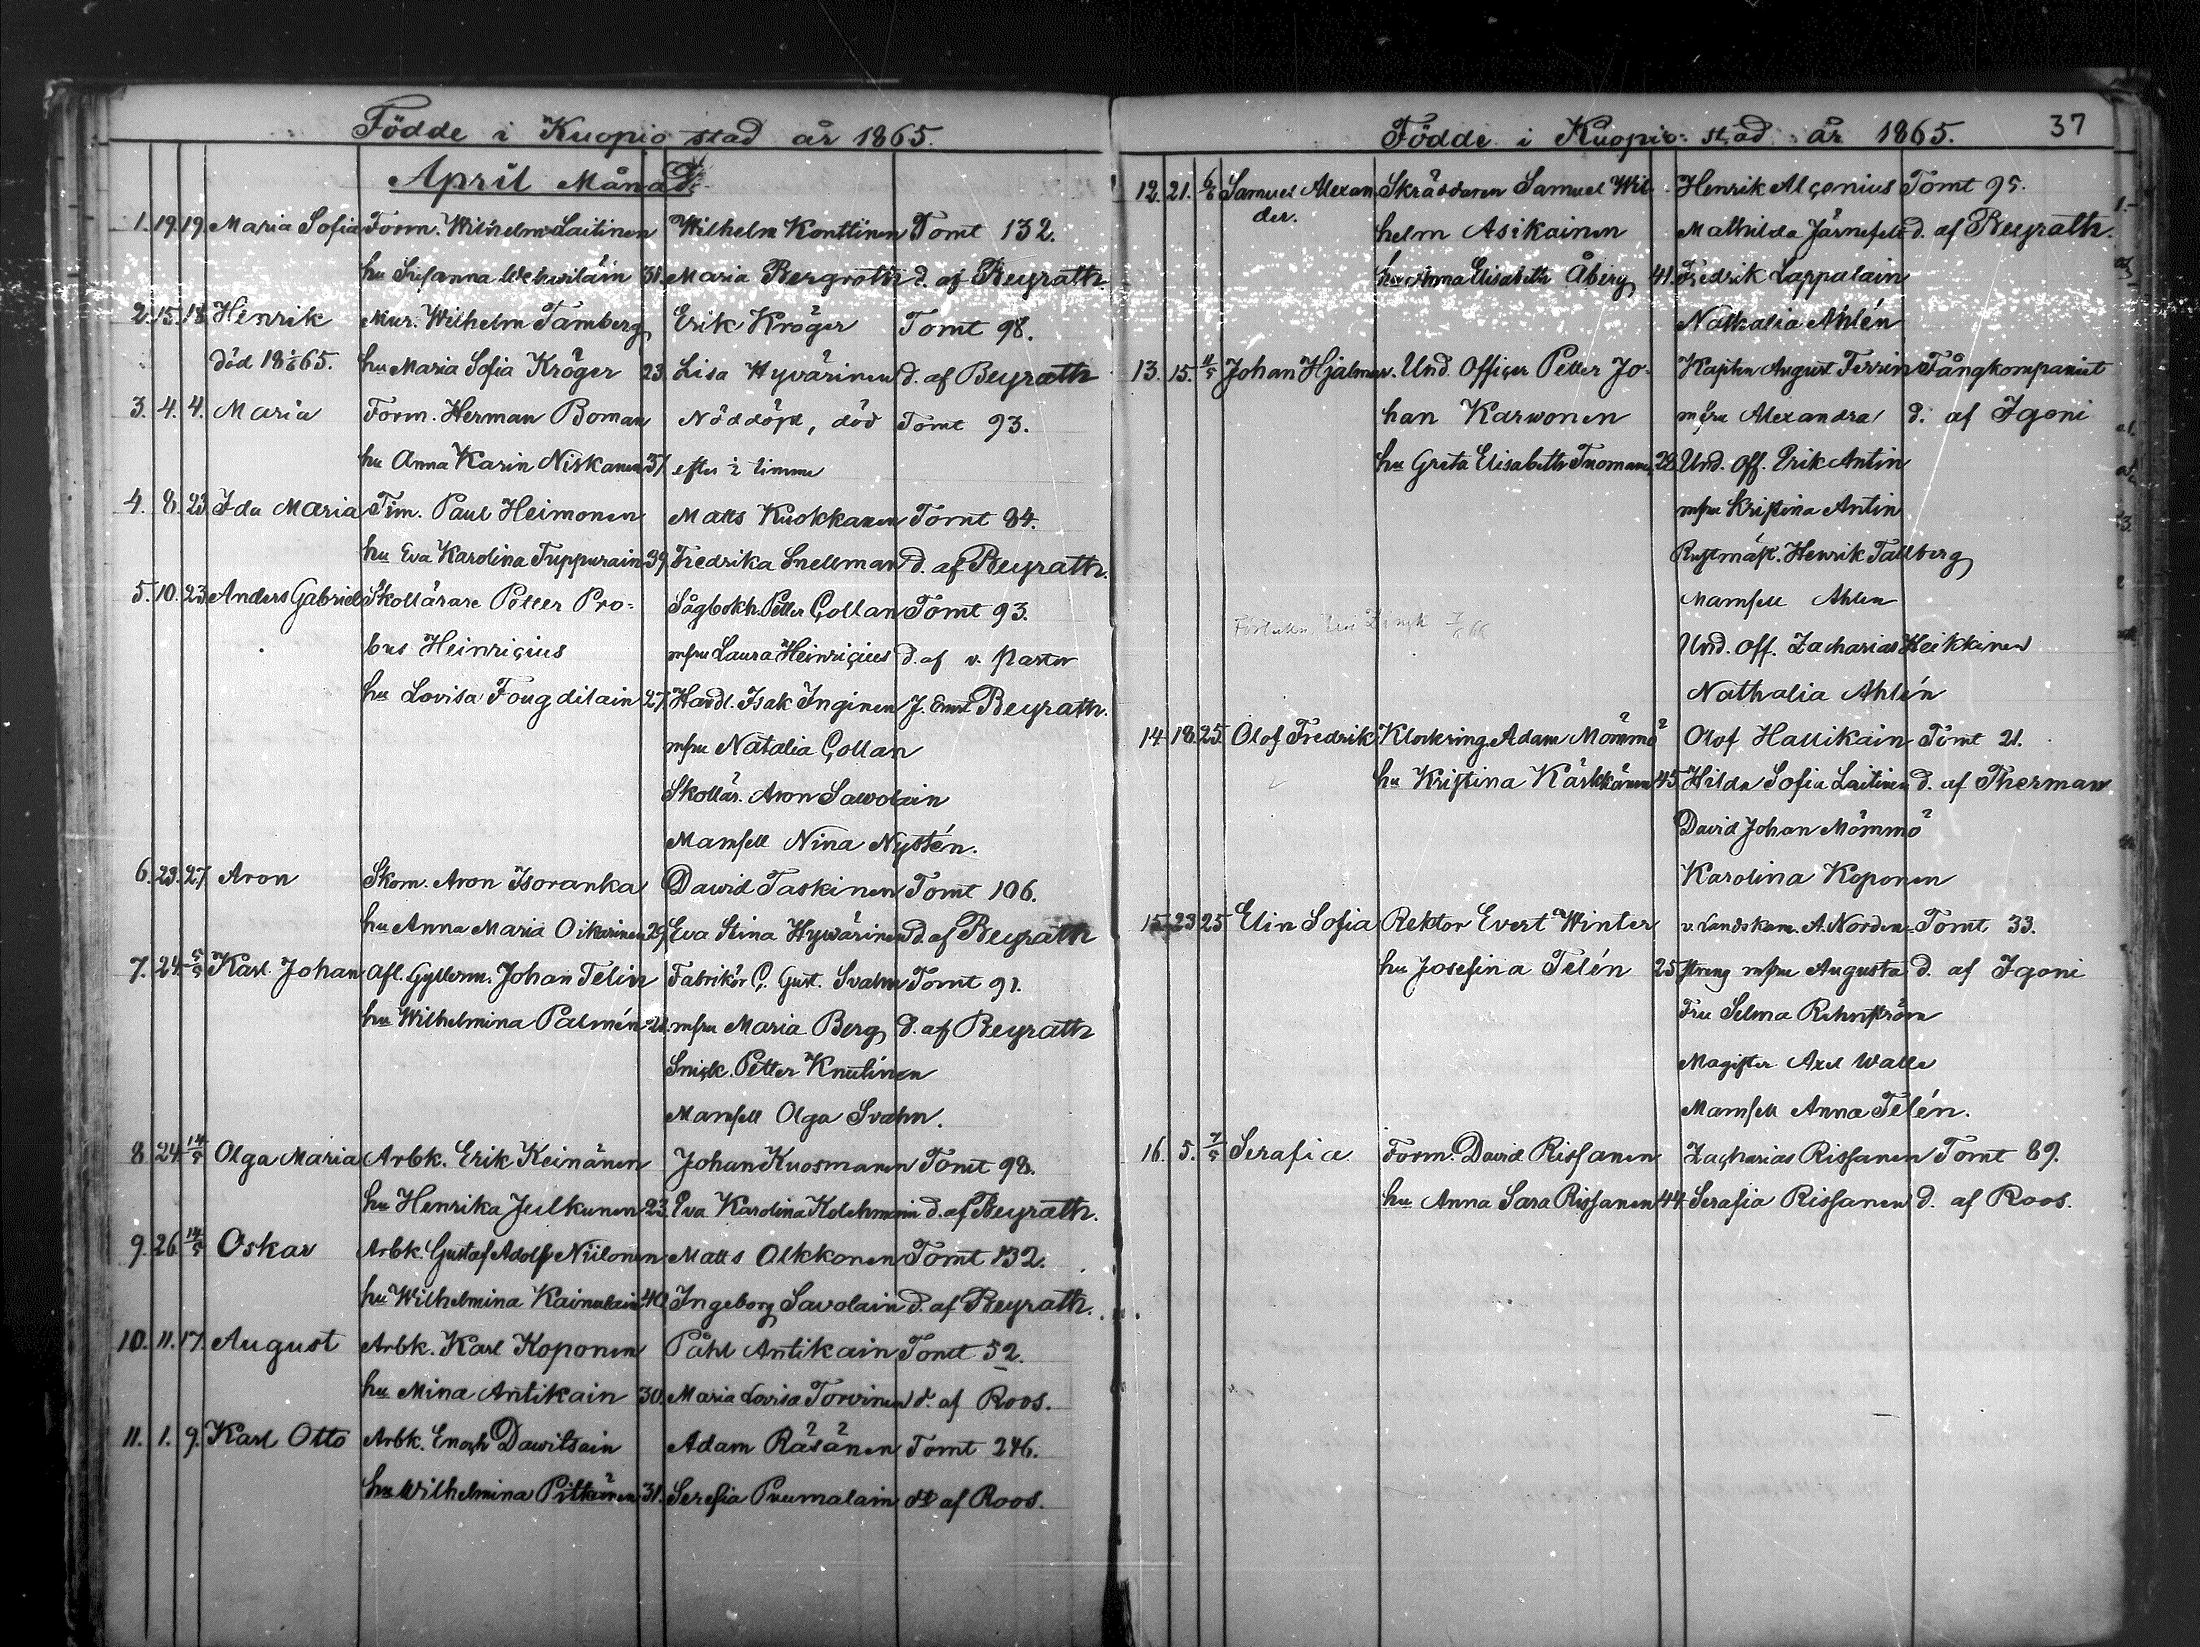 Födde i Kuopio stad år 1865.
April Månad.
1. 19. 19. Maria Sofia Form. Wilhelm Laitinen Wilhelm Konttinen Tomt 132.
hu Susanna 31. Maria Bergroth d. af Beyrath
2. 15. 18. Henrik Mur. Wilhelm Tamberg Erik Kröger Tomt 98.
död 65. hu Maria Sofia Kröger 23. Lisa Hyvärinen d. af Beyrath
3. 4. 4. Maria Form. Herman Boman Nöddöpt, död Tomt 93.
hu Anna Karin Niskanen 37. efter ½ timme
4. 8. 23. Ida Maria Tim. Paul Heimonen Matts Kuokkanen Tomt 84.
hu Eva Karolina Tuppurain 39. Fredrika Snellman d. af Beyrath.
5. 10. 23. Anders Gabriel Skollärare Petter Pro-
Sågbokh. Petter Çollan Tomt 93.
bus Heinriçius mfru Laura Heinriçius d. af v. Pastor
hu Lovisa Fougdilain 27. Handl. Isak Inginen J. Beyrath.
mfru Natalia Çollan
Skollär. Aron Sawolain
Mamsell Nina Nystén.
6. 23. 27. Aron Skom. Aron Isoranka Dawid Taskinen Tomt 106.
hu Anna Maria Oikarinen 29. Eva Stina Hywärinen d. af Beyrath
7. 24. 5/5 Karl Johan Afl. Gyllenm. Johan Telin Fabrikör Ç. Gust. Svahn Tomt 91.
hu Wilhelmina Palmén 28. mfru Maria Berg d. af Beyrath
Sniçk. Petter Knutinen
Mamsell Olga Svahn.
8. 24. 14/5 Olga Maria Arbk. Erik Keinänen Johan Kuosmanen Tomt 98.
hu Henrika Julkunen 23. Eva Karolina Kolehmain d. af Beyrath.
9. 26. 14/5 Oskar Arbk. Gustaf Adolf Niilonen Matts Olkkonen Tomt 132.
hu Wilhelmina Kainulain 40. Ingeborg Savolain d. af Beyrath.
10. 11. 17. August Arbk. Karl Koponen Påhl Antikain Tomt 52.
hu Mina Antikain 30. Maria Lovisa Torvinen d. af Roos.
11. 1. 9. Karl Otto Arbk. Enoçh Dawitsain Adam Räsänen Tomt 246.
hu Wilhelmina Pitkänen 31. Serafia Puumalain dt af Roos.
Födde i Kuopio stad år 1865. 37
12. 21. 6/5 Samuel Alexan Skräddaren Samuel Wil- Henrik Alçenius Tomt 95.
der. helm Asikainen Mathilda Järnefelt d. af Beyrath.
hu Anna Elisabeth Åberg 41. Fredrik Lappalain
Nathalia Ahlén
13. 15. 11/5 Johan Hjalmar. Und. Offiçer Petter Jo- Kapten August Ferrin Fångkompaniet
han Karwonen mfru Alexandra d. af Igoni
hu Greta Elisabeth Tuomain 28. Und. Off. Erik Antin
mfru Kristina Antin
Rustmäst. Henrik Tallberg
Mamsell Ahlen
Und. Off. Zacharias Heikkinen
Nathalia Ahlén
14. 18. 25. Olof Fredrik Klockring. Adam Mömmö Olof Hallikain Tomt 21.
hu Kristina Kärkkäinen 45. Hilda Sofia Laitinen d. af Therman
David Johan Mömmö
Karolina Koponen
15. 23. 25. Elin Sofia Rektor Evert Winter v. Landskam. A. Norden- Tomt 33.
hu Josefina Telén 25. streng mfru Augusta d. af Igoni
Fru Selma Rehnström
Magister Axel Walle
Mamsell Anna Telén.
16. 5. 7/5 Serafia Form. David Rissanen Zaçharias Rissanen Tomt 89.
hu Anna Sara Rissanen 44. Serafia Rissanen d. af Roos.